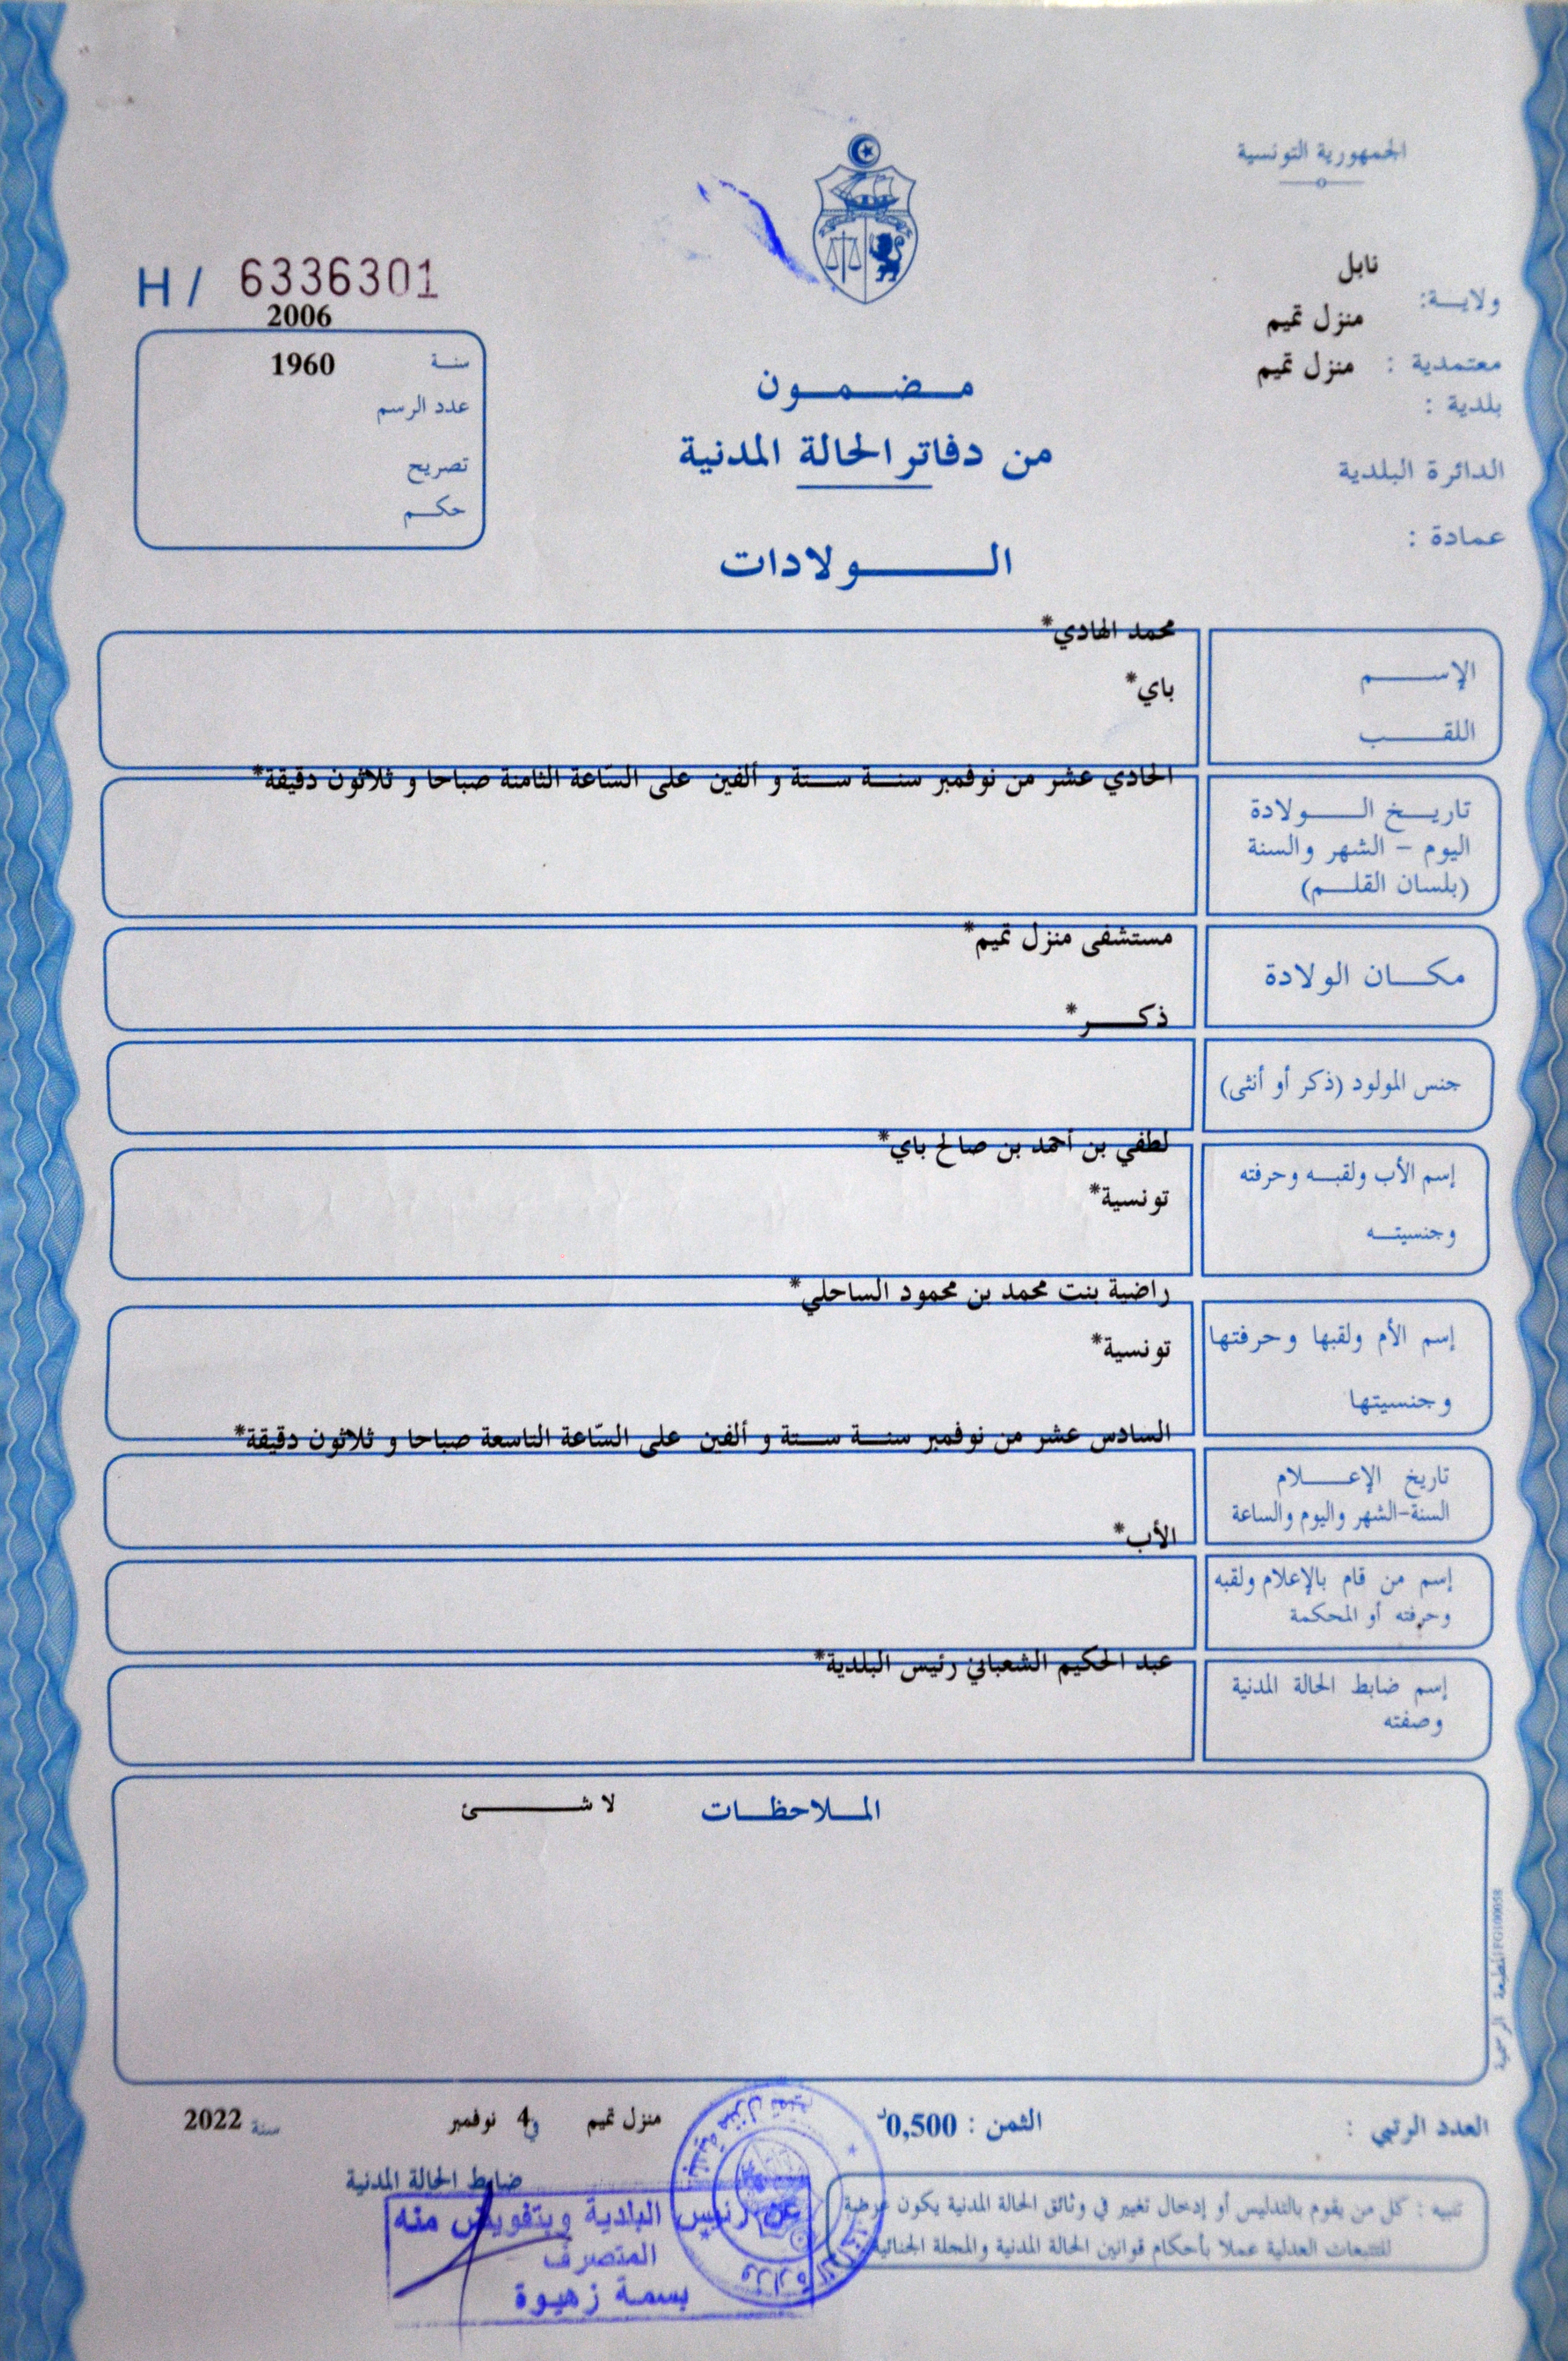 الجمهورية التونسية
H / 6336301
2006
سنة 1960
عدد الرسم
تصريح
حكم
نابل
ولاية:
منزل تميم
معتمدية : منزل تميم
بلدية :
الدائرة البلدية
عمادة :
مضمون
من دفاتر الحالة المدنية
الولادات
محمد الهادي*
الإسم
باي*
اللقب
الحادي عشر من نوفمبر سنة ستة و ألفين على السّاعة الثامنة صباحا و ثلاثون دقيقة*
تاريخ الولادة
اليوم - الشهر والسنة
(بلسان القلم)
مستشفى منزل تميم*
مكان الولادة
ذكر*
جنس المولود (ذكر أو أنثى)
لطفي بن أحمد بن صالح باي*
إسم الأب ولقبه وحرفته
تونسية*
وجنسيته
راضية بنت محمد بن محمود الساحلي*
إسم الأم ولقبها وحرفتها
تونسية*
وجنسيتها
السادس عشر من نوفمبر سنة ستة و ألفين على السّاعة التاسعة صباحا و ثلاثون دقيقة*
تاريخ الإعلام
السنة-الشهر واليوم والساعة
الأب*
إسم من قام بالإعلام ولقبه
وحرفته أو المحكمة
عبد الحكيم الشعباني رئيس البلدية*
إسم ضابط الحالة المدنية
وصفته
الملاحظات لا شئ
المطبعة الرسمية
العدد الرتبي :
الثمن : 0,500د
منزل تميم في 4 نوفمبر سنة 2022
ضابط الحالة المدنية
عن رئيس البلدية وبتفويض منه
المتصرف
بسمة زهيوة
تنبيه : كل من يقوم بالتدليس أو إدخال تغيير في وثائق الحالة المدنية يكون عرضة
للتتبعات العدلية عملا بأحكام قوانين الحالة المدنية والمجلة الجنائية